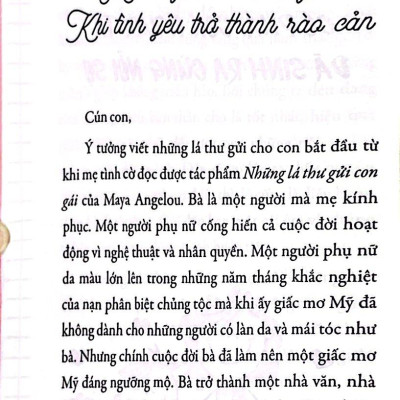 Khi tình yêu trở thành rào cản
Củn con,
Ý tưởng viết những lá thư gửi cho con bắt đầu từ
khi mẹ tình cờ đọc được tác phẩm Những lá thư gửi con
gái của Maya Angelou. Bà là một người mà mẹ kính
phục. Một người phụ nữ cống hiến cả cuộc đời hoạt
động vì nghệ thuật và nhân quyền. Một người phụ nữ
da màu lớn lên trong những năm tháng khắc nghiệt
của nạn phân biệt chủng tộc mà khi ấy giấc mơ Mỹ đã
không dành cho những người có làn da và mái tóc như
bà. Nhưng chính cuộc đời bà đã làm nên một giấc mơ
Mỹ đáng ngưỡng mộ. Bà trở thành một nhà văn, nhà